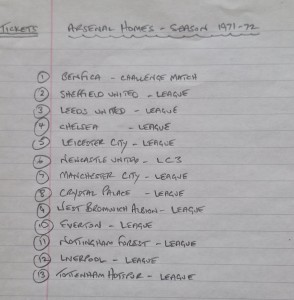 TICKETS ARSENAL HOMES - SEASON 1971-72
1 BENFICA - CHALLENGE MATCH
2 SHEFFIELD UNITED - LEAGUE
3 LEEDS UNITED - LEAGUE
4 CHELSEA - LEAGUE
5 LEICESTER CITY - LEAGUE
6 NEWCASTLE UNITED - L.C3
7 MANCHESTER CITY - LEAGUE
8 CRYSTAL PALACE - LEAGUE
9 WEST BROMWICH ALBION - LEAGUE
10 EVERTON - LEAGUE
11 NOTTINGHAM FOREST - LEAGUE
12 LIVERPOOL - LEAGUE
13 TOTTENHAM HOTSPUR - LEAGUE